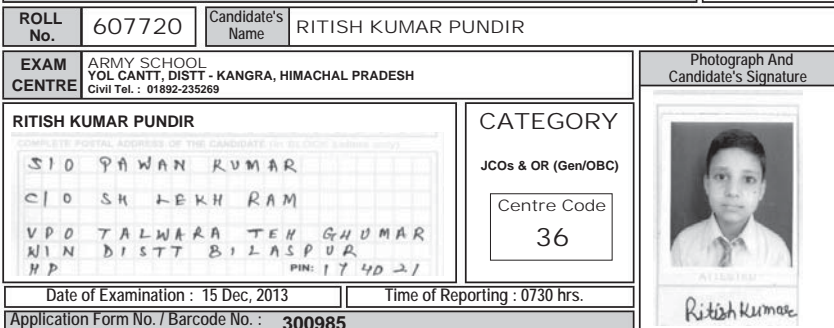 ROLL No. 607720 Candidate's Name RITISH KUMAR PUNDIR
EXAM CENTRE ARMY SCHOOL
YOL CANTT, DISTT - KANGRA, HIMACHAL PRADESH
Civil Tel. : 01892-235269
Photograph And Candidate's Signature
RITISH KUMAR PUNDIR
COMPLETE POSTAL ADDRESS OF THE CANDIDATE
S/O PAWAN KUMAR
C/O SH LEKH RAM
VPO TALWARA TEH GHUMAR
WIN DISTT BILASPUR
HP PIN: 174021
CATEGORY
JCOs & OR (Gen/OBC)
Centre Code
36
ATTESTED
Ritish Kumar
Date of Examination : 15 Dec, 2013 Time of Reporting : 0730 hrs.
Application Form No. / Barcode No. : 300985